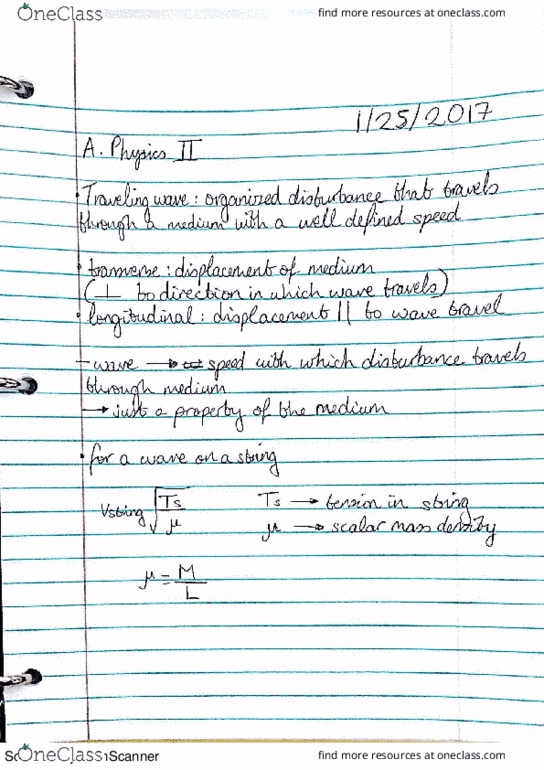 OneClass
find more resources at oneclass.com
1/25/2017
A. Physics II
• Traveling wave : organized disturbance that travels
through a medium with a well defined speed
• transverse : displacement of medium
(⊥ to direction in which wave travels)
• longitudinal : displacement || to wave travel
- wave → speed with which disturbance travels
through medium
→ just a property of the medium
• for a wave on a string
Vstring √(Ts/μ) Ts → tension in string
μ → scalar mass density
μ = M/L
OneClass Scanner
find more resources at oneclass.com